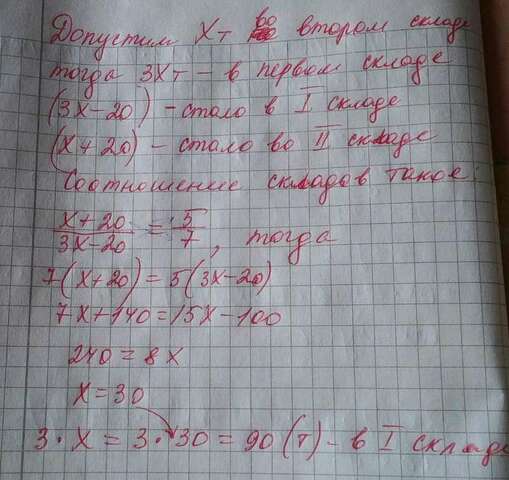 Допустим Xт во втором складе
тогда 3Xт – в первом складе
(3X–20) – стало в I складе
(X+20) – стало во II складе
Соотношение складов такое:
X+20/3X–20 = 5/7, тогда
7(X+20)=5(3X–20)
7X+140=15X–100
240=8X
X=30
3·X = 3·30 = 90 (т) – в I складе